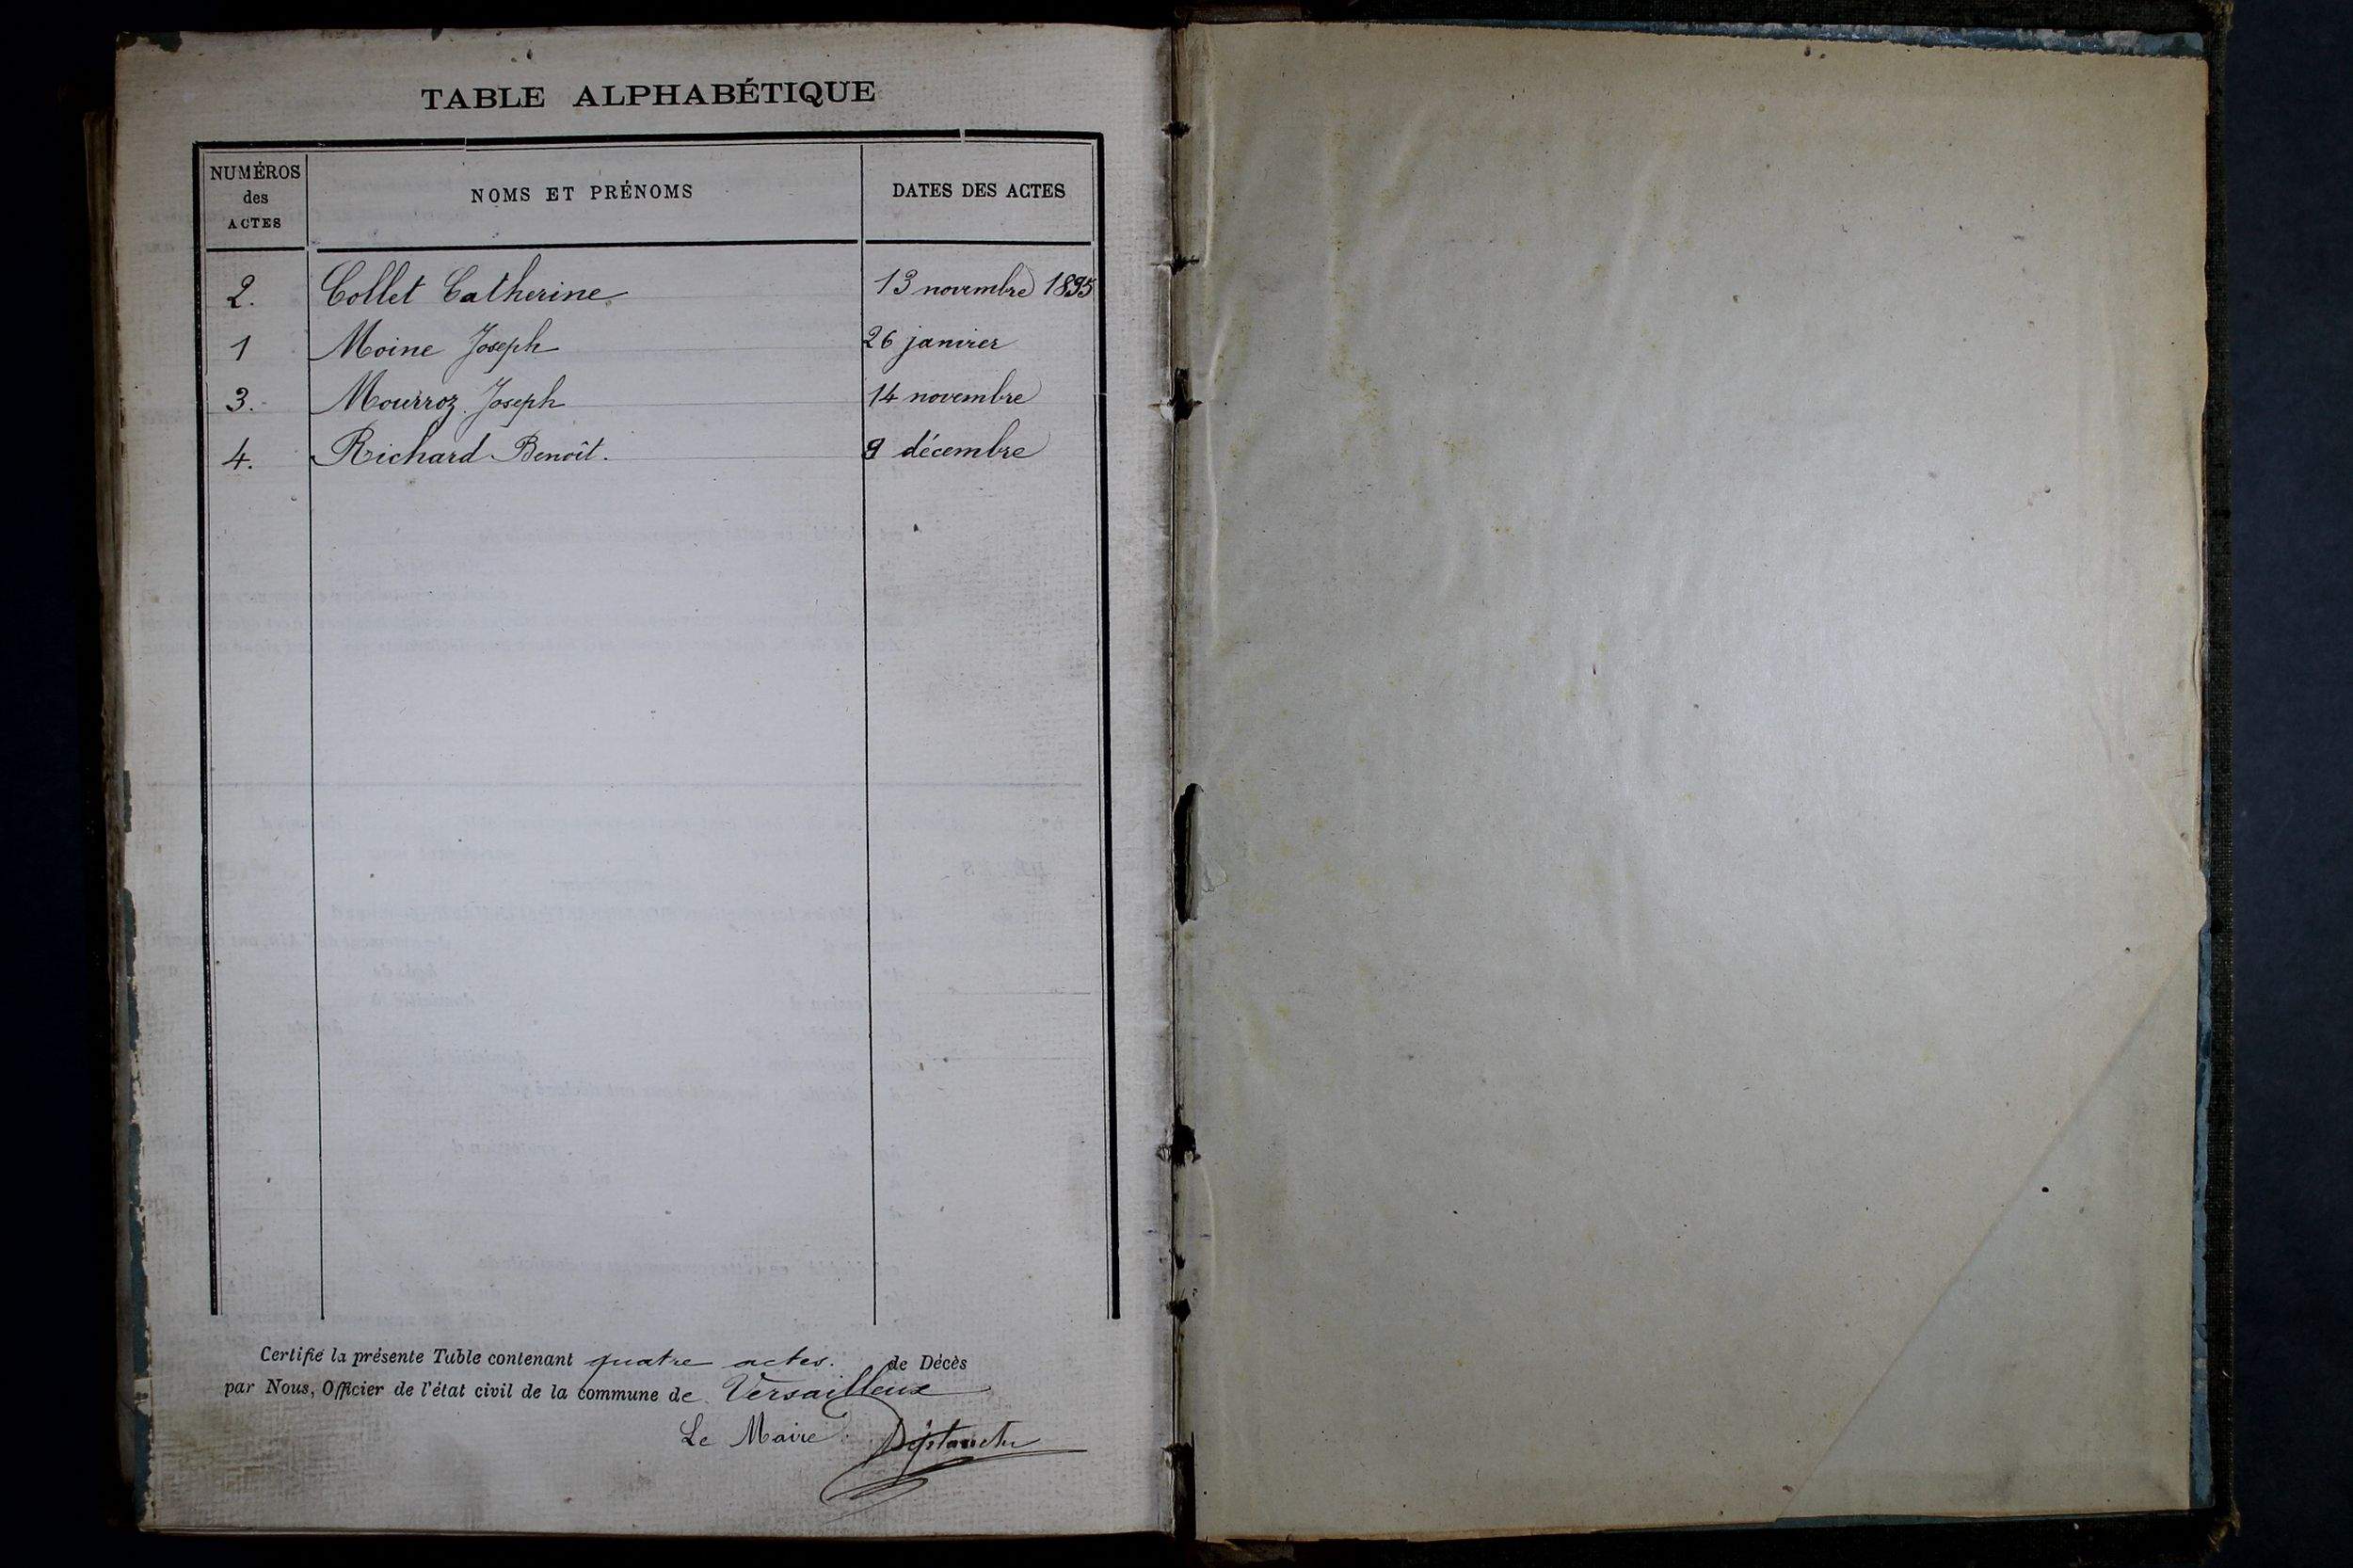 TABLE ALPHABÉTIQUE
NUMÉROS des ACTES NOMS ET PRÉNOMS DATES DES ACTES
2. Collet Catherine 13 novembre 1895
1 Moine Joseph 26 janvier
3. Mourroz Joseph 14 novembre
4. Richard Benoît. 9 décembre
Certifié la présente Table contenant quatre actes. de Décès
par Nous, Officier de l'état civil de la commune de Versailleux
Le Maire